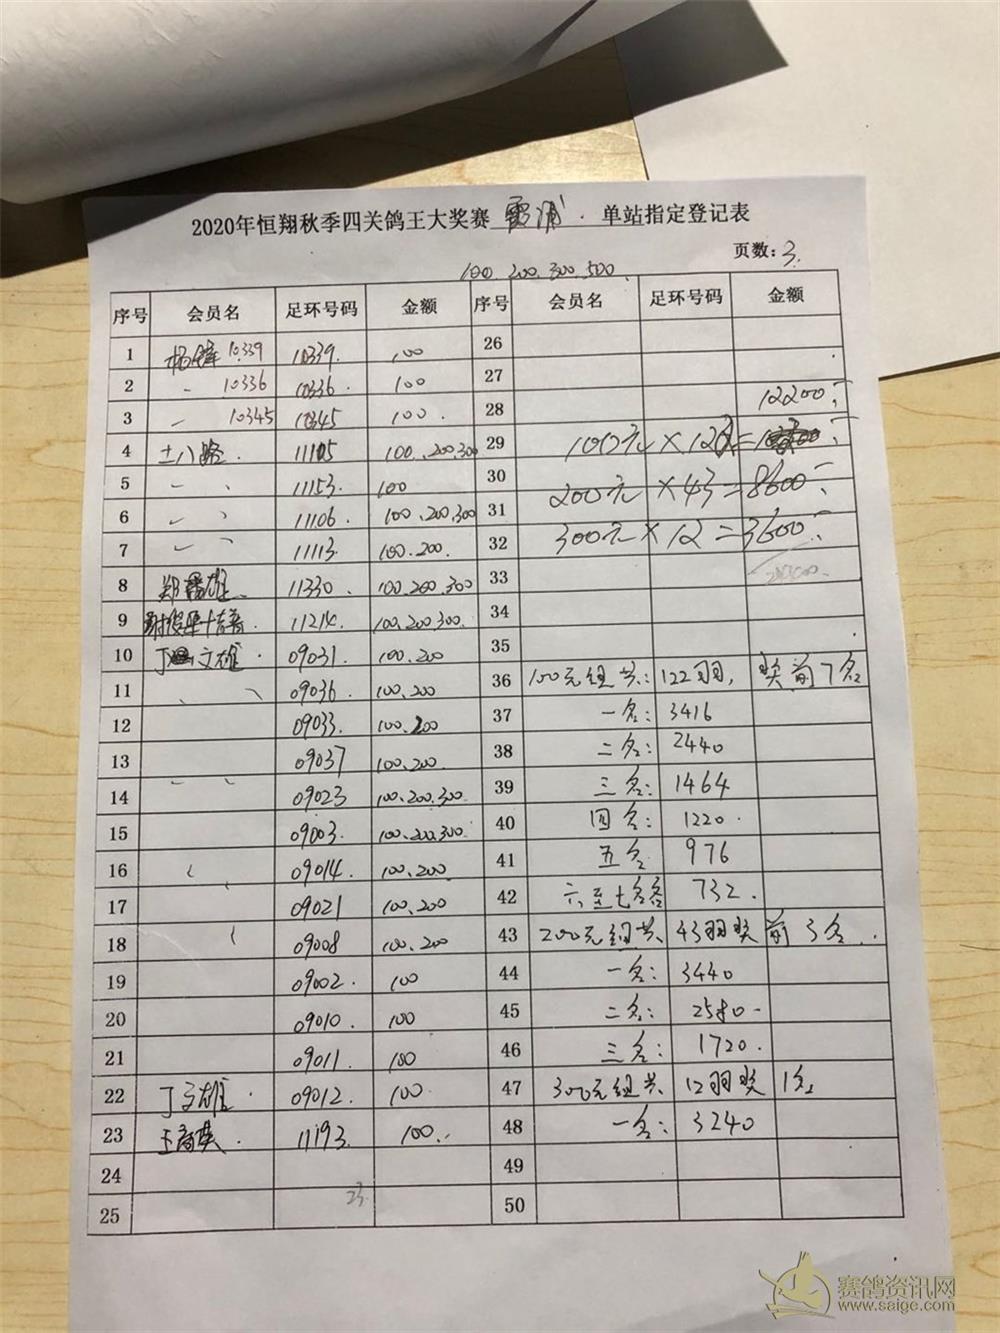 2020年恒翔秋季四关鸽王大奖赛 霞浦 单站指定登记表
页数:3
100.200.300.500
序号 会员名 足环号码 金额 序号 会员名 足环号码 金额
1 杨锋 10339 10339. 100 26
2 10336 10336. 100 27
3 10345 10345 100. 28 12200
4 十八路. 11105 100.200.300 29 100元×122=
5 11153. 100 30 200元×43=8600
6 11106 100.200.300 31
7 11113. 100.200. 32 300元×12=3600
8 郑雄 11330 100.200.300 33
9 11214. 100.200.300. 34
10 丁文雄 09031. 100.200 35
11 09036 100.200 36 100元组共: 122羽, 奖前7名
12 09033. 100.200 37 一名: 3416
13 09037 100.200 38 二名: 2440
14 09023 100.200.300. 39 三名: 1464
15 09003. 100.200.300 40 四名: 1220.
16 09014. 100.200 41 五名 976
17 09021 100.200 42 六至七名 732.
18 09008 100.200 43 200元组共 43羽奖 前3名.
19 09002. 100 44 一名: 3440
20 09010. 100 45 二名: 2580-
21 09011. 100 46 三名: 1720.
22 丁文雄 09012. 100 47 300元组共 12羽奖 1名
23 11193. 100.. 48 一名: 3240
24 49
25 23 50
赛鸽资讯网
www.saige.com